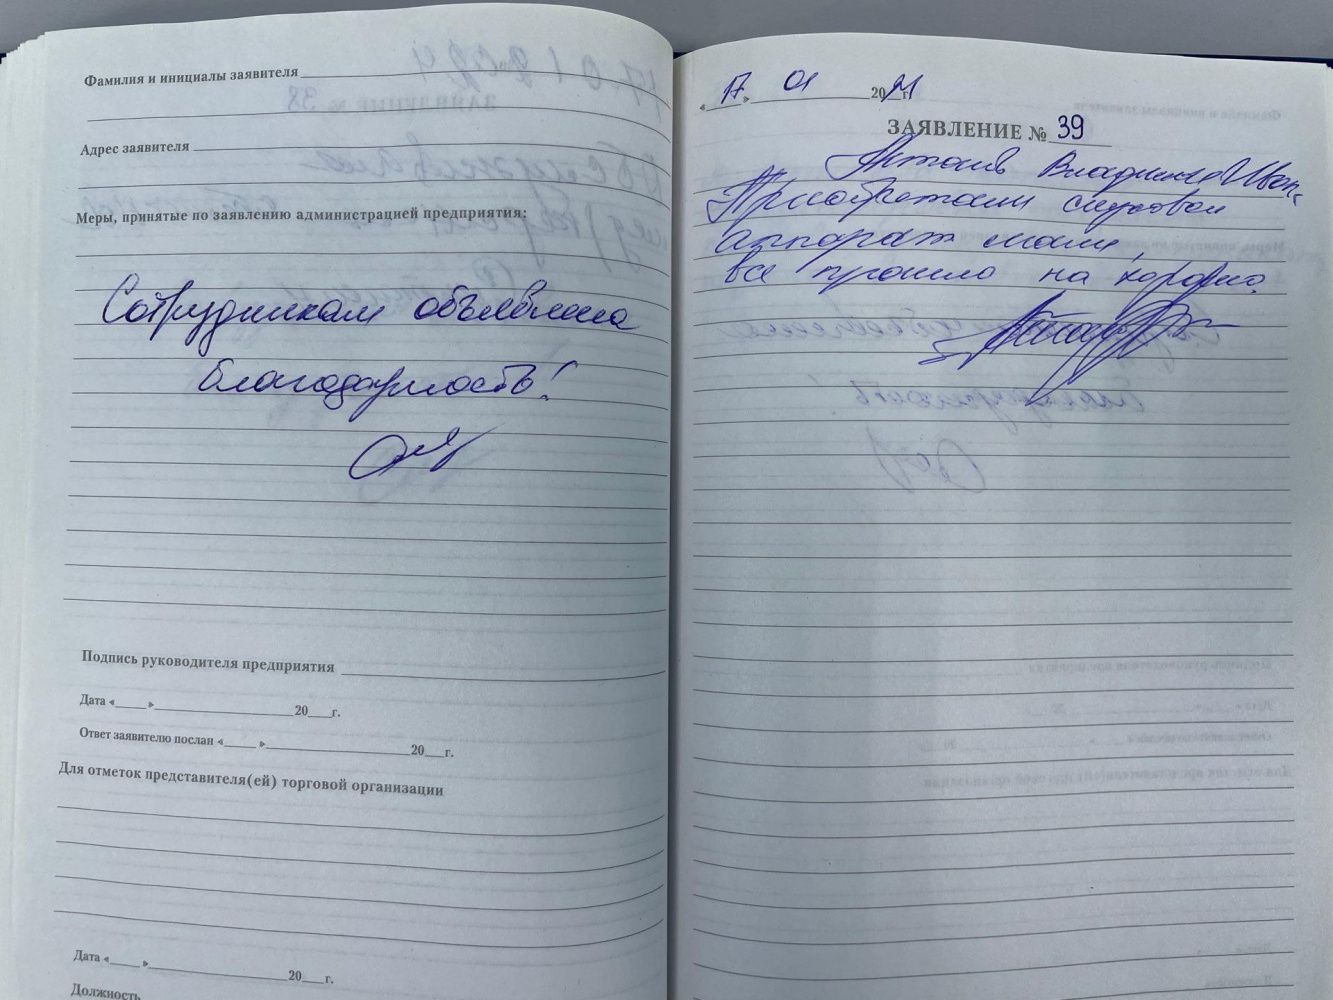 Фамилия и инициалы заявителя
Адрес заявителя
Меры, принятые по заявлению администрацией предприятия:
Сотрудникам объявлена
благодарность!
Подпись руководителя предприятия
Дата «    »                20   г.
Ответ заявителю послан «    »                20   г.
Для отметок представителя(ей) торговой организации
Дата «    »                20   г.
Должность
«17» 01 2024 г.
ЗАЯВЛЕНИЕ № 39
Владимир
Приобретали слуховой
аппарат маме,
все прошло на хорошо.